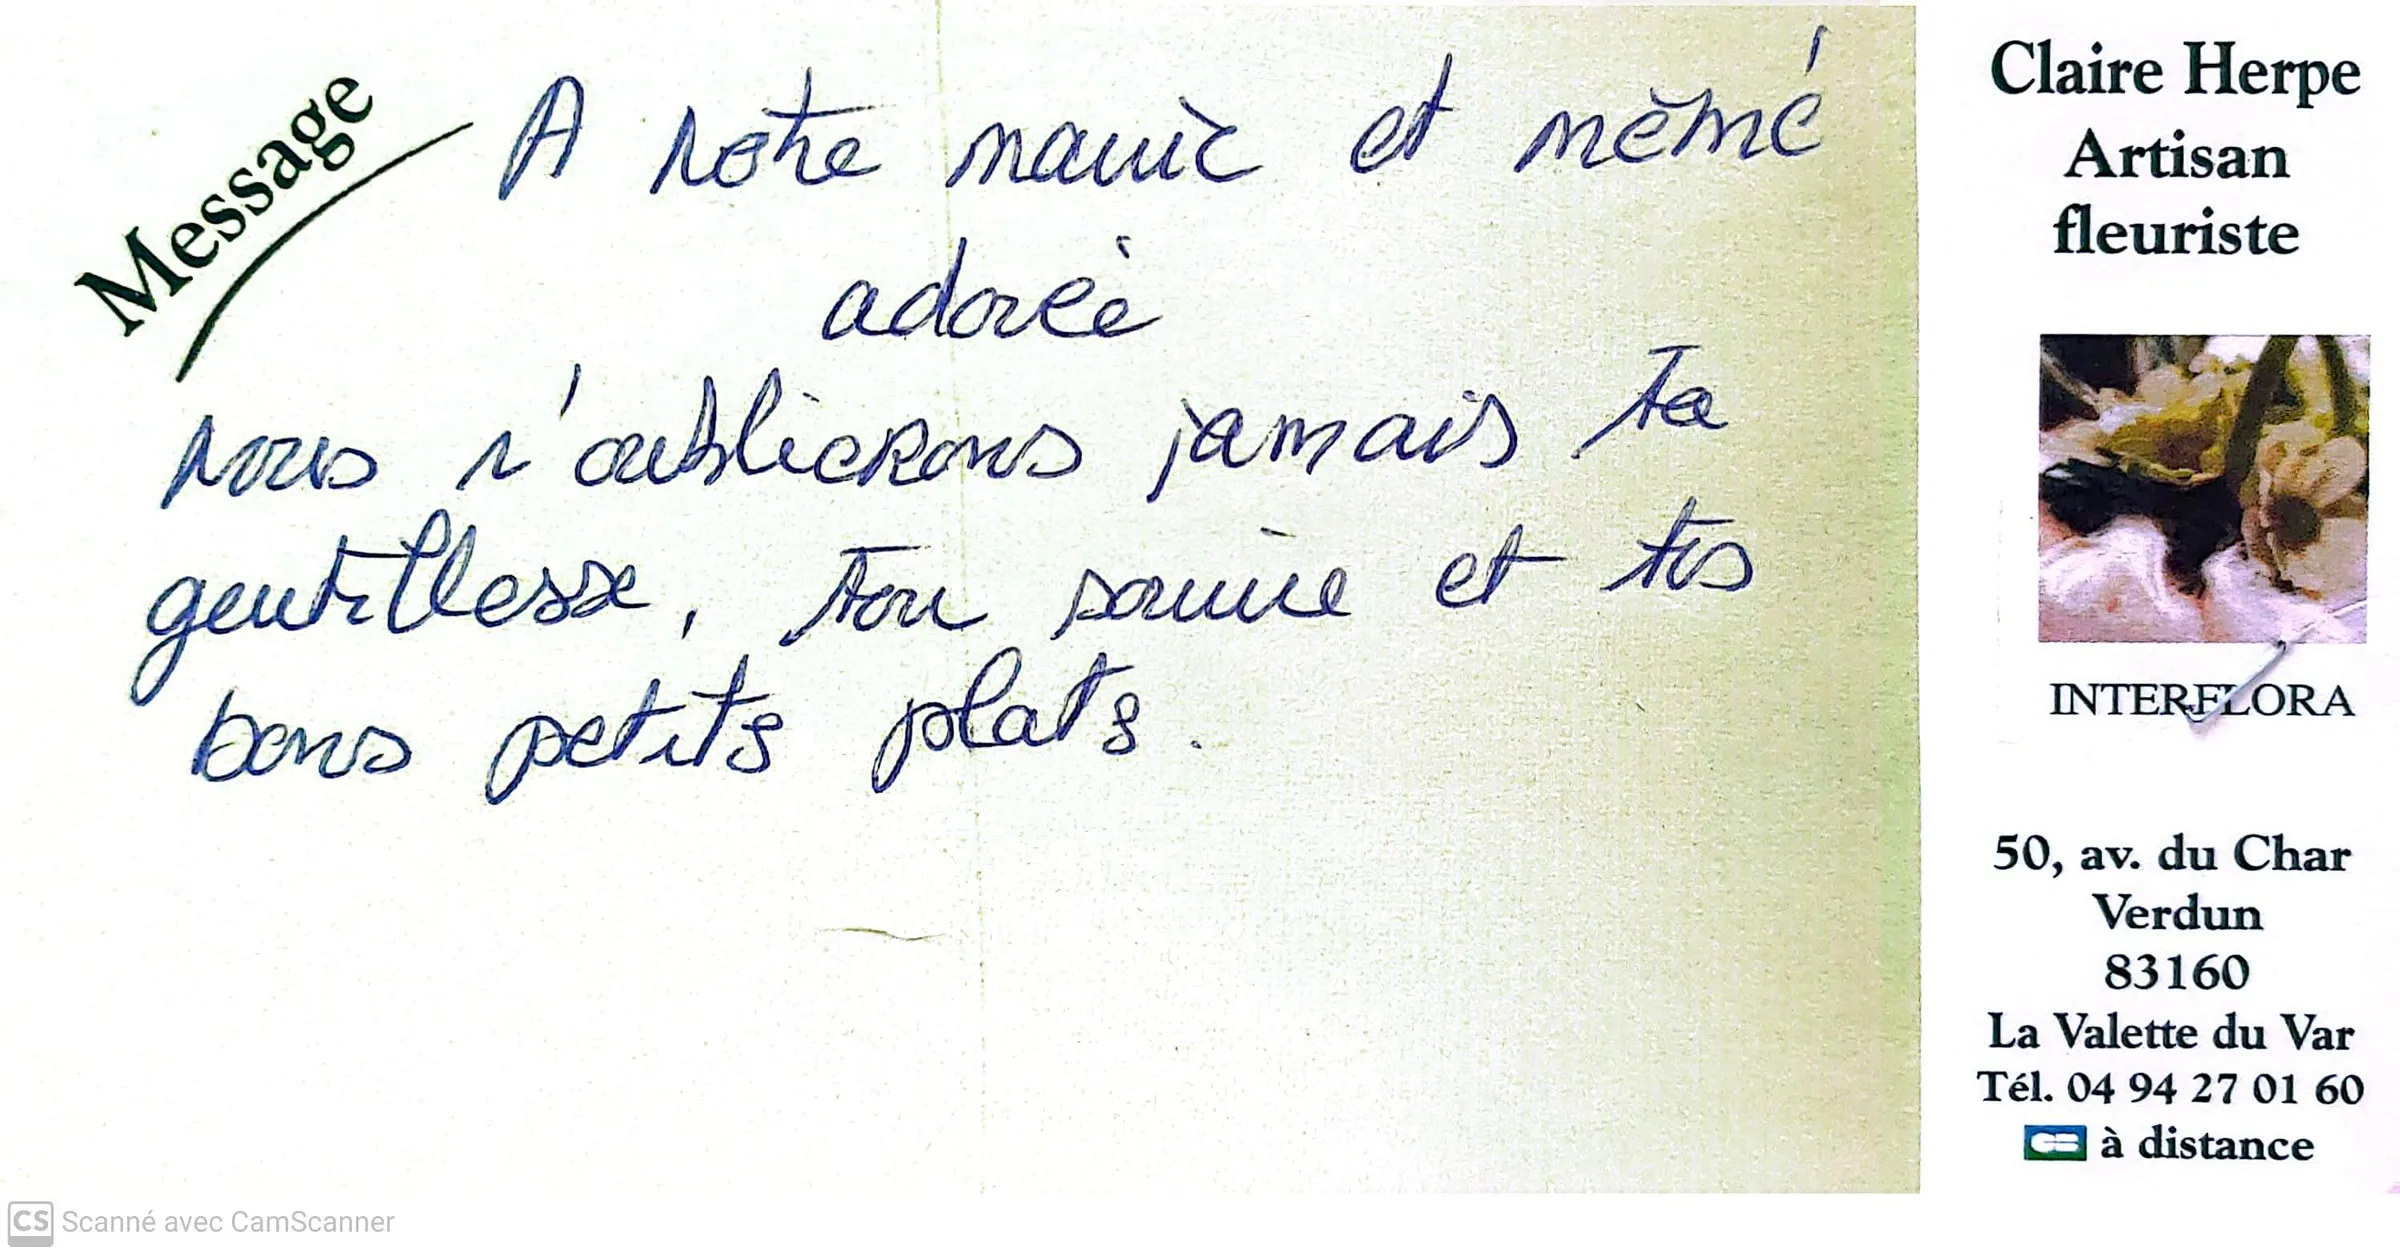 Message
A notre mamie et mémé
adorée
nous n'oublierons jamais ta
gentillesse, ton sourire et tes
bons petits plats.
Claire Herpe
Artisan
fleuriste
INTERFLORA
50, av. du Char
Verdun
83160
La Valette du Var
Tél. 04 94 27 01 60
CB à distance
CS Scanné avec CamScanner